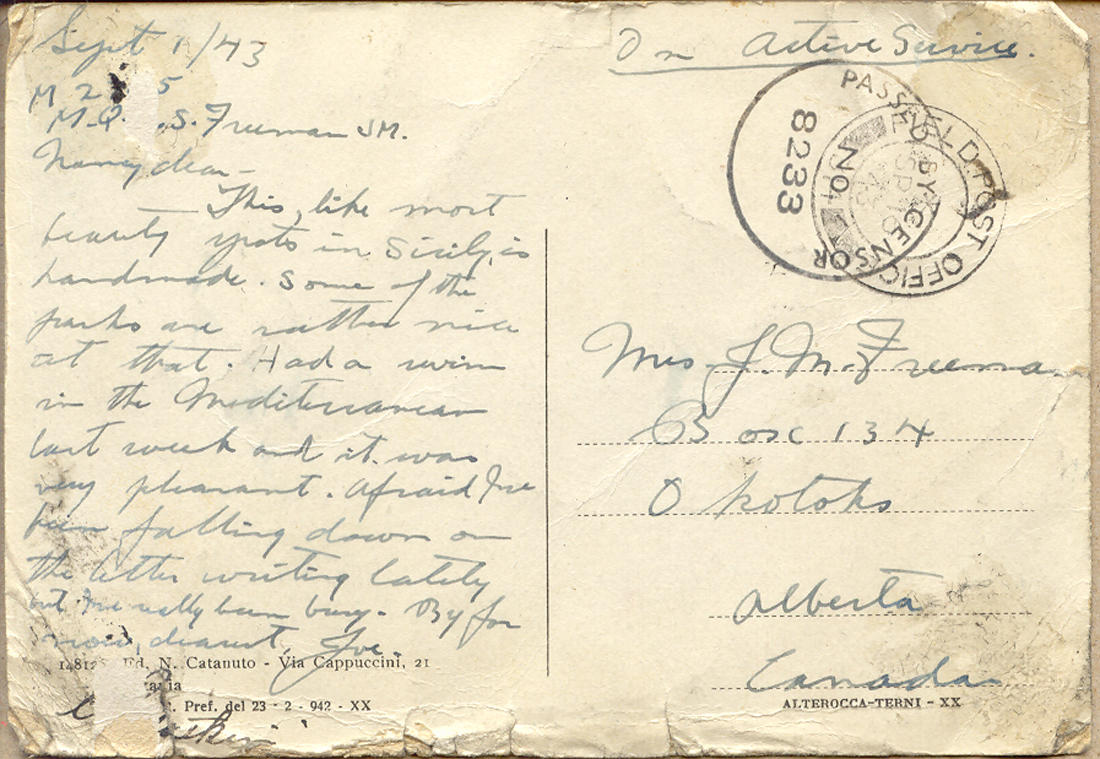 Sept 1/43
M 2 5
M.Q. .S. Freeman JM.
Nancy dear -
This, like most
beauty spots in Sicily, is
handmade. Some of the
parks are rather nice
at that. Had a swim
in the Mediterranean
last week and it was
very pleasant. Afraid I've
been falling down on
the letter writing lately
but I've really been busy. By for
now, dearest, Joe.
1481 Ed. N. Catanuto - Via Cappuccini, 21
ania
. Pref. del 23 - 2 - 942 - XX
On Active Service.
PASSED BY CENSOR
NO.
8233
FIELD POST OFFICE
Mrs J. M. Freeman
Box 134
Okotoks
Alberta
Canada
ALTEROCCA-TERNI - XX